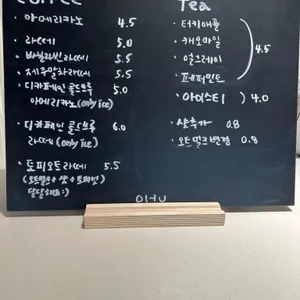 COFFEE
· 아메리카노 4.5
· 라떼 5.0
· 바닐라빈라떼 5.5
· 제주말차라떼 5.5
· 디카페인 콜드브루 5.0
아메리카노 (only ice)
· 디카페인 콜드브루 6.0
라떼 (only ice)
· 토피오트라떼 5.5
(오트밀크 + 샷 + 토피넛)
달달해요 :)
Tea
· 터키애플
· 캐모마일
· 얼그레이
· 페퍼민트
4.5
· 아이스티 4.0
· 샷추가 0.8
· 오트밀크변경 0.8